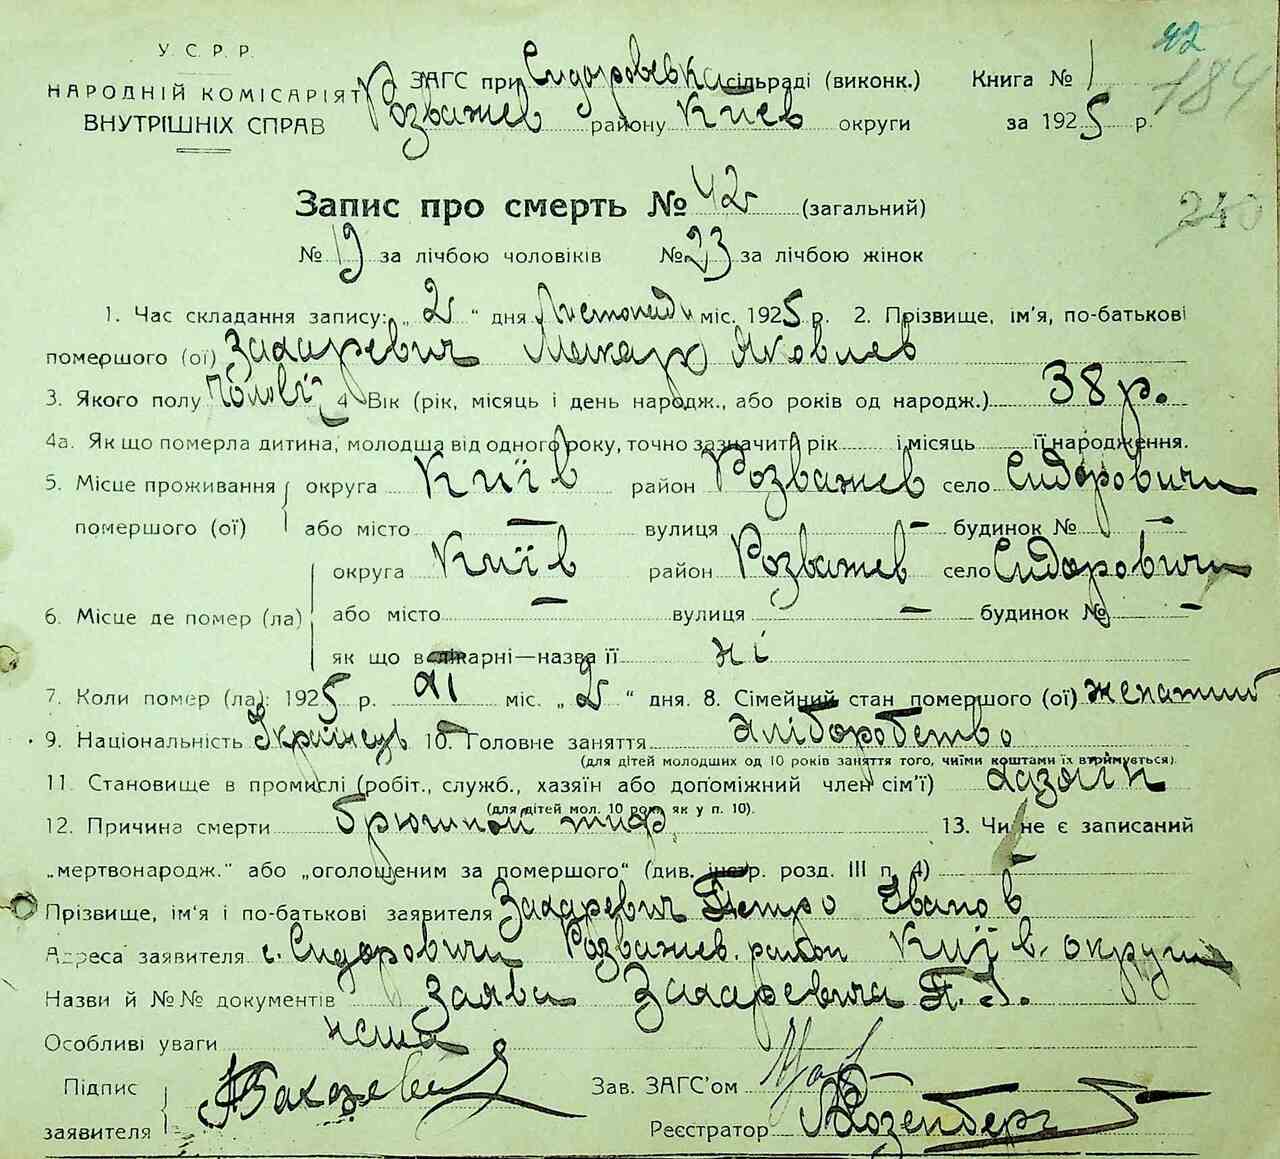 42
184
У. С. Р. Р.
НАРОДНІЙ КОМІСАРІЯТ
ВНУТРІШНІХ СПРАВ
ЗАГС при Сидоровська сільраді (виконк.) Книга № 1
Розважев району Київ округи за 1925 р.
Запис про смерть № 42 (загальний)
240
№ 19 за лічбою чоловіків № 23 за лічбою жінок
1. Час складання запису: „ 2 “ дня Листопада міс. 1925 р. 2. Прізвище, ім'я, по-батькові
помершого (ої) Захаревич Макар Яковлев
3. Якого полу Чолові 4 Вік (рік, місяць і день народж., або років од народж.) 38 р.
4а. Як що померла дитина, молодша від одного року, точно зазначити рік і місяць її народження.
5. Місце проживання помершого (ої) округа Київ район Розважев село Сидоровичи
або місто — вулиця — будинок № —
6. Місце де помер (ла) округа Київ район Розважев село Сидоровичи
або місто — вулиця — будинок № —
як що в лікарні—назва її ні
7. Коли помер (ла): 1925 р. XI міс. „ 2 “ дня. 8. Сімейний стан помершого (ої) женатий
9. Національність Українець 10. Головне заняття хліборобство
(для дітей молодших од 10 років заняття того, чиїми коштами їх втримується).
11. Становище в промислі (робіт., служб., хазяїн або допоміжний член сім'ї) хазяїн
(для дітей мол. 10 рок. як у п. 10).
12. Причина смерти брюшной тиф 13. Чи не є записаний
„мертвонародж.“ або „оголошеним за помершого“ (див. інстр. розд. III п. 4) —
Прізвище, ім'я і по-батькові заявителя Захаревич Петро Іванов
Адреса заявителя с. Сидоровичи Розважев. район Київ. округи
Назви й №№ документів Заява Захаревича П. І.
Особливі уваги нема
Підпис заявителя
Зав. ЗАГС'ом
Реєстратор Розенберг